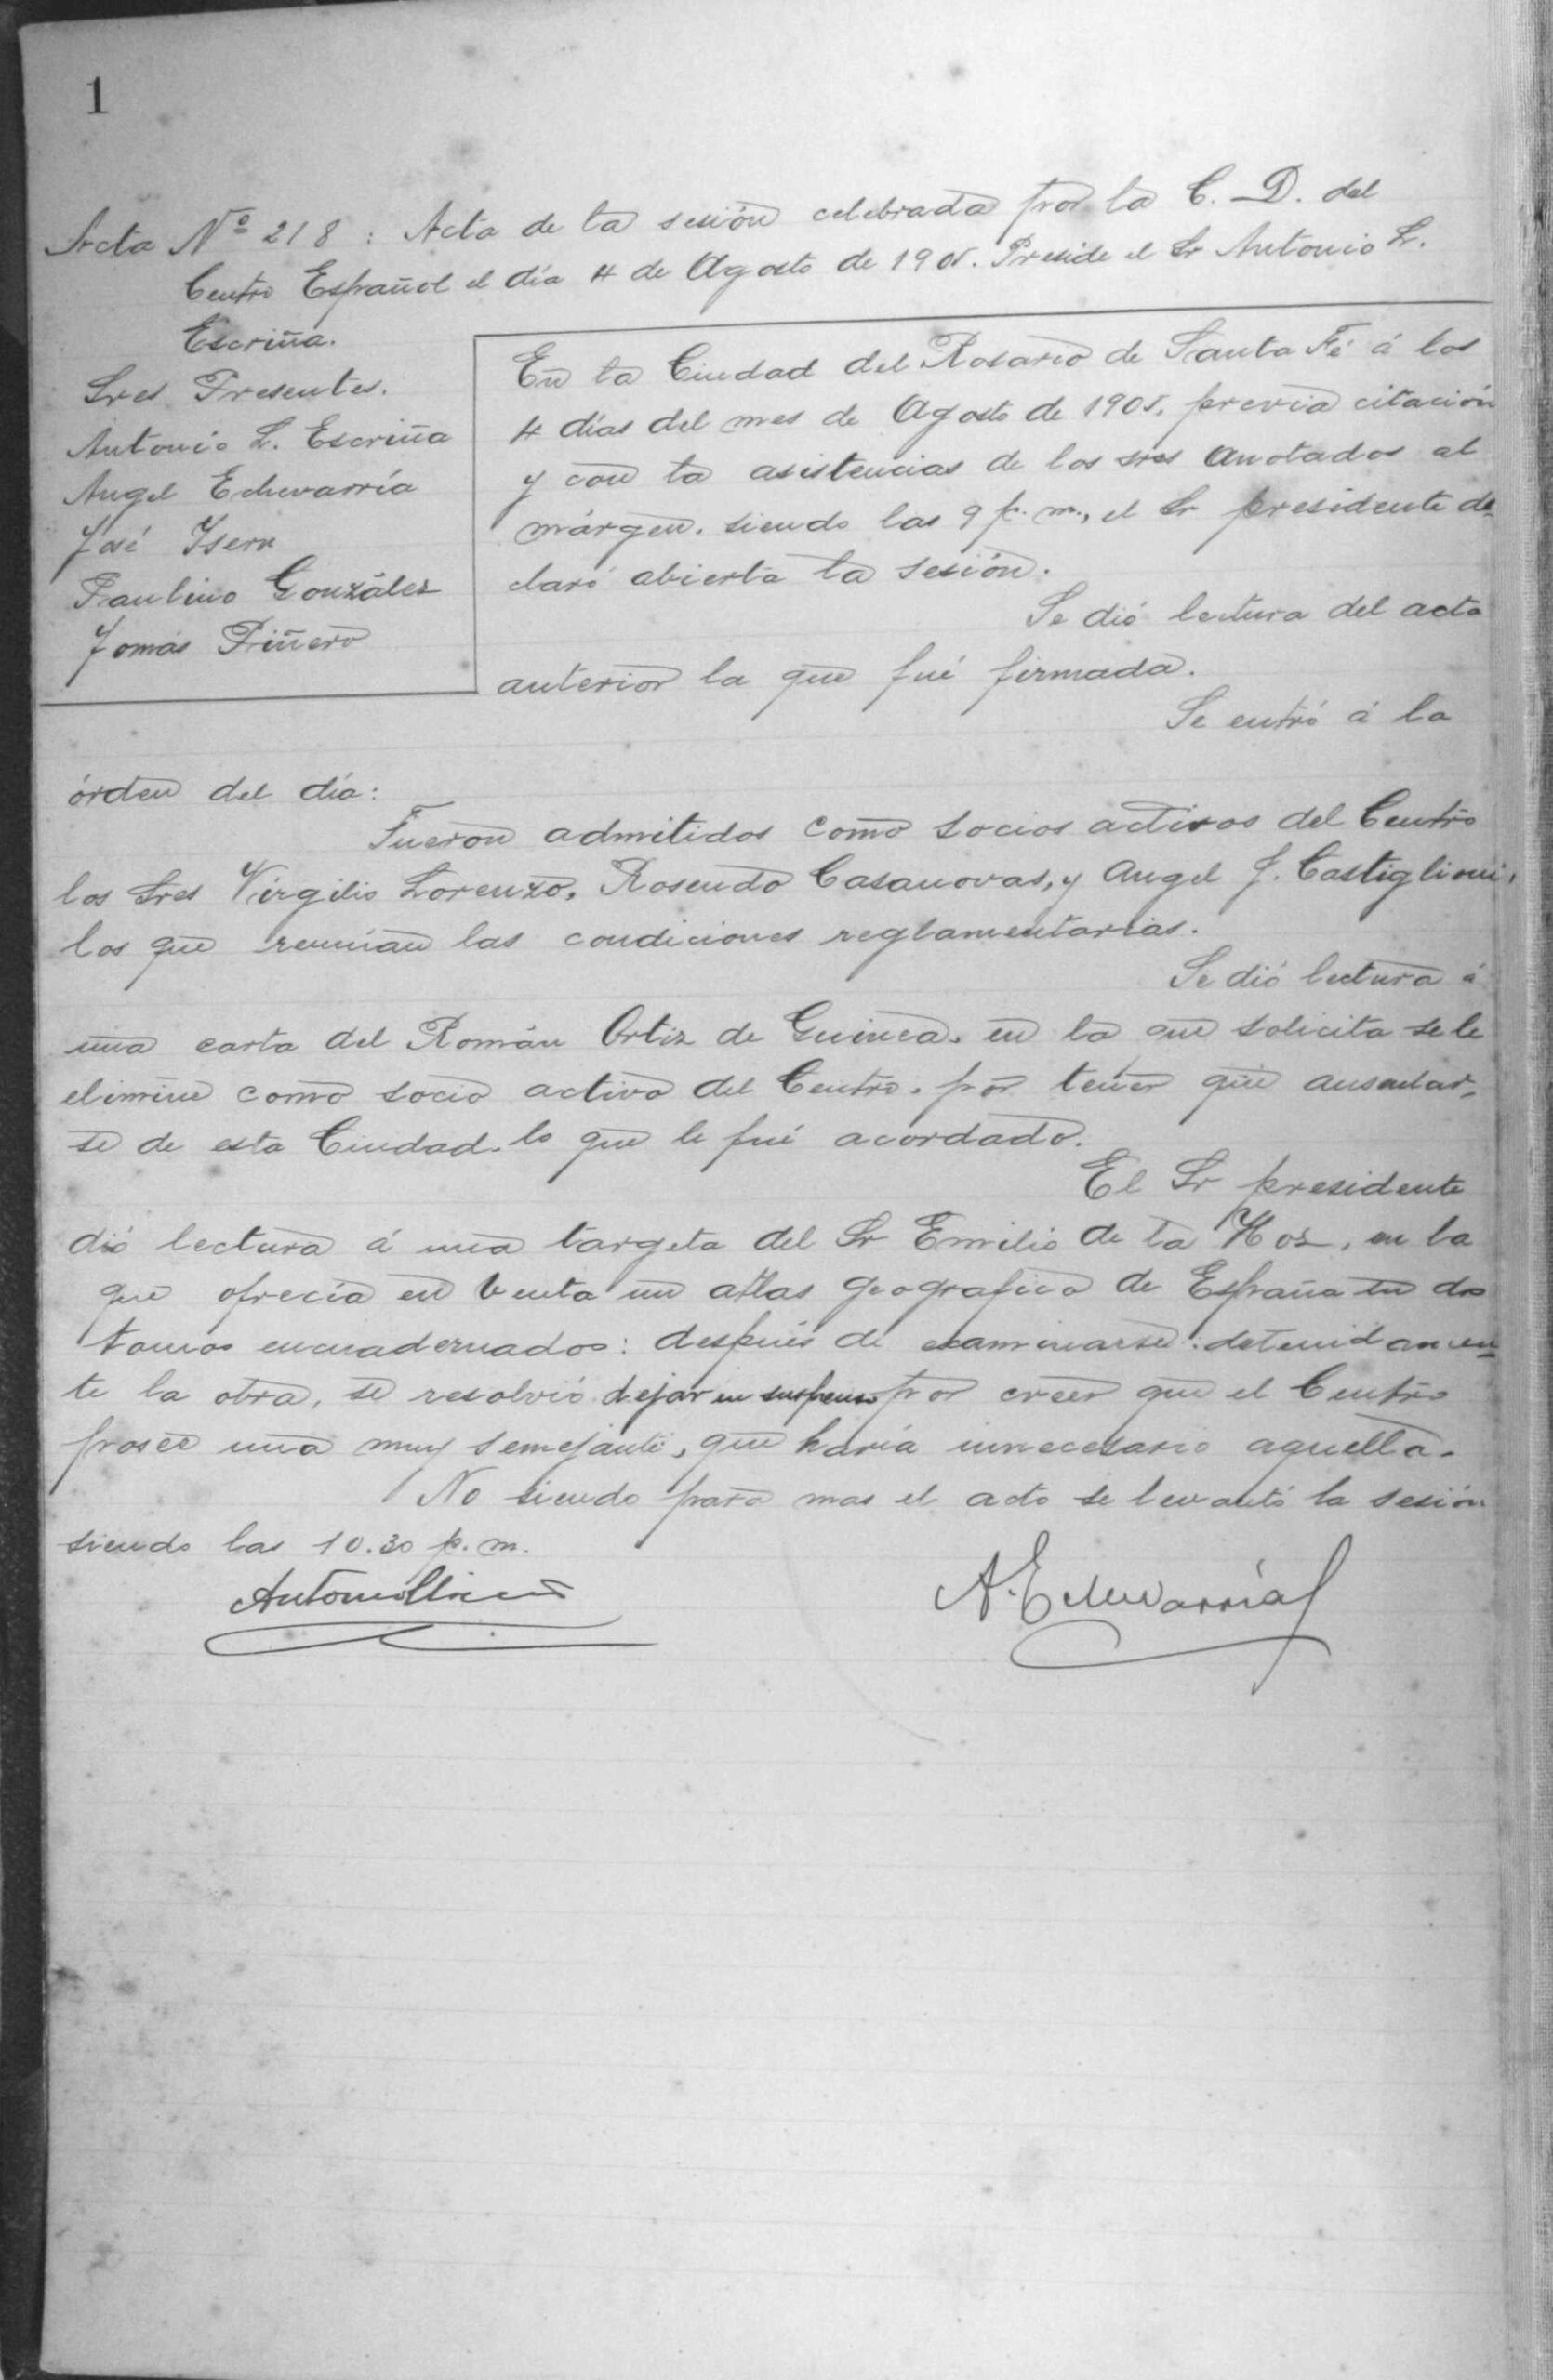 1
Acta Nº 218 : Acta de la sesión celebrada por la C. D. del
Centro Español el día 4 de Agosto de 1905. Preside el Sr Antonio L.
Escriña.
Sres Presentes.
Antonio L. Escriña
Angel Echevarría
José Isern
Paulino González
Tomás Piñero
En la Ciudad del Rosario de Santa Fé á los
4 días del mes de Agosto de 1905, previa citación
y con la asistencias de los sres anotados al
márgen. siendo las 9 p. m., el Sr presidente de-
claró abierta la sesión.
Se dió lectura del acta
anterior la que fué firmada.
Se entró á la
órden del día:
Fueron admitidos como socios activos del Centro
los Sres Virgilio Lorenzo, Rosendo Casanovas, y Angel J. Castiglioni,
los que reunían las condiciones reglamentarias.
Se dió lectura á
una carta del Román Ortiz de Guinea, en la que solicita se le
elimine como socio activo del Centro, por tener que ausentar-
se de esta Ciudad. lo que le fué acordado.
El Sr presidente
dió lectura á una targeta del Sr Emilio de la Hoz, en la
que ofrecía en venta un atlas geografico de España en dos
tomos encuadernados: después de examinarse detenidamen-
te la obra, se resolvió dejar en suspenso por creer que el Centro
posee una muy semejante, que haría innecesario aquella.
No siendo para mas el acto se levantó la sesión
siendo las 10.30 p. m.
A. Echevarría